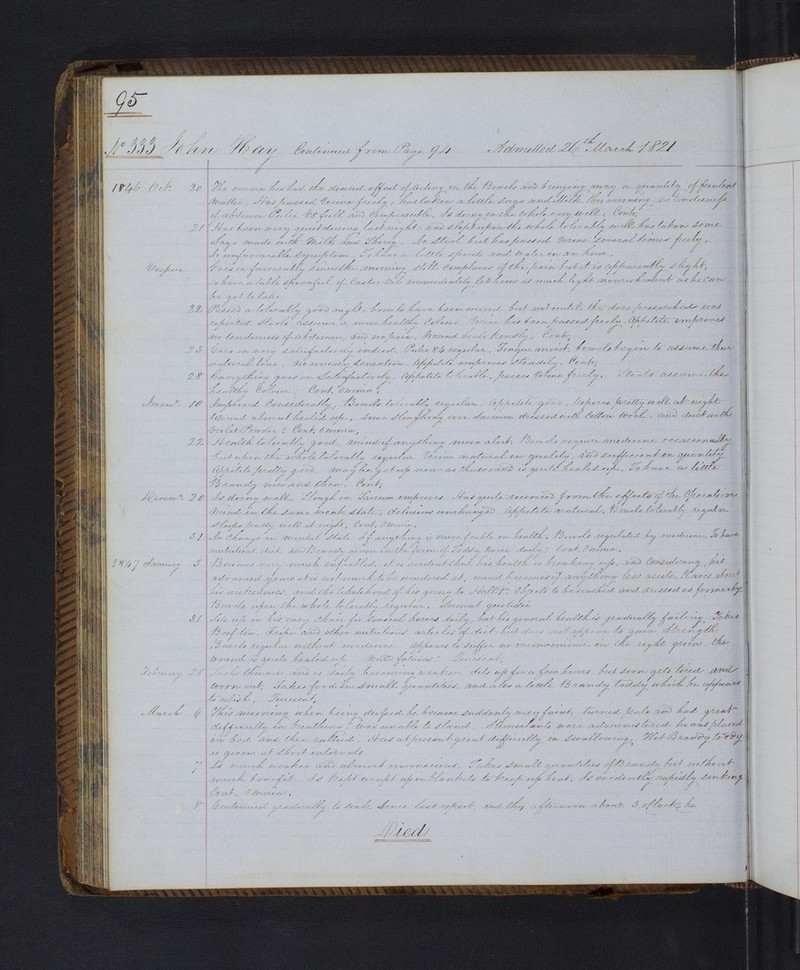 95
No 333 John Hay Continued from Page 94 Admitted 26th March 1821
1846 Oct. 20 The enema has had the desired effect of acting on the Bowels and bringing away a quantity of feculent
matter. Has passed Urine freely, has taken a little sago and Milk this morning, no uneasiness
of abdomen Pulse 88 full and compressible. Is doing on the whole very well. Cont.
21 Has been very quiet during last night and slept upon the whole tolerably well has taken some
Sago made with Milk and Sherry. No Stool but has passed Urine several times freely.
No unfavourable symptom. To have a little spirits and water in an hour.
Vespere Goes on favourably since the morning still complains of the pain but it is apparently slight,
to have a table spoonful of Castor Oil immediately let him as much light nourishment as he can
be got to take
22 Passed a tolerably good night. bowels have been moved but not until the dose prescribed was
repeated. Stools assume a more healthy Colour. Urine has been passed freely. Appetite improves
no tenderness of abdomen, and no pain. Wound heals kindly. Cont.
23 Goes on very satisfactorily indeed. Pulse 84 regular. Tongue moist, bowels begin to assume their
natural tone. No uneasy sensation appetite improves steadily. Cont.
28 Every thing goes on Satisfactorily. Appetite tolerable, passes Urine freely. Stools assume the
healthy Colour. Cont. omnia.
Novemr. 10 Improved considerably, Bowels tolerably regular. Appetite good. Reposes pretty well at night
Wound almost healed up. Some sloughing over Sacrum dressed with Cotton Wool and dust with
Violet Powder. Cont. omnia.
22 Health tolerably good. mind if anything more alert. Bowels require medicine occasionally
but upon the whole tolerably regular Urine natural in quality, and sufficient in quantity
Appetite pretty good. may be got up now as the wound is quite healed up. To have a little
Brandy now and then. Cont.
Decemr. 20 Is doing well. Slough on Sacrum improves. Has quite recovered from the effects of the Operation
Mind in the same weak state. delusions unchanged Appetite natural, Bowels tolerably regular
Sleeps pretty well at night. Cont. Omnia.
31 No change in mental state if anything is more feeble in health. Bowels regulated by medicine. To have
nutritious diet and Brandy given in the form of Toddy twice daily. Cont. Omnia.
1847 January 3 Becomes very much enfeebled, it is evident that his health is breaking up, and considering his
advanced years it is not much to be wondered at. mind becomes if anything less acute. Raves about
his and the likelihood of his going to Objects to be washed and dressed as formerly.
Bowels upon the whole tolerably regular.
31 Sits up in his easy chair for several hours daily, but his general health is gradually failing. Takes
Beef tea, and other nutritious articles of diet but does not appear to gain strength
Bowels regular without medicine. Appears to suffer no inconvenience in the right groin. the
wound is quite healed up.
February 28 Looks thinner and is daily becoming weaker. Sits up for a few hours but soon gets tired and
worn out. Takes food in small quantities, and also a little Brandy toddy which he appears
to relish.
March 6 This morning when being dressed he became suddenly very faint, turned pale and had great
difficulty in breathing & was unable to stand. Stimulants were administered he was placed
in bed and then rallied. Has at present great difficulty in swallowing. Hot Brandy toddy
is given at short intervals
7 Is much weaker and almost unconscious. Takes small quantities of Brandy but without
much benefit. Is kept wrapt up in blankets to keep up heat. Is evidently rapidly sinking
Cont. Omnia.
8 Continued gradually to sink since last report, and this afternoon about 3 o'Clock, he
Died